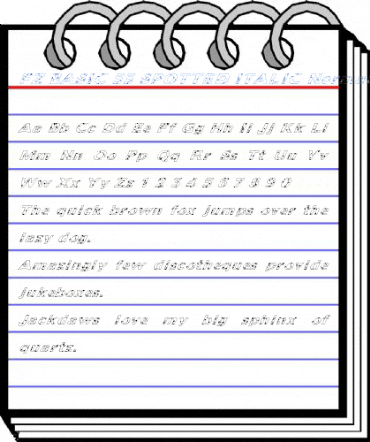 FE BASIC 5E SPOTTED ITALIC
Aa Bb Cc Dd Ee Ff Gg Hh Ii Jj Kk Ll
Mm Nn Oo Pp Qq Rr Ss Tt Uu Vv
Ww Xx Yy Zz 1 2 3 4 5 6 7 8 9 0
The quick brown fox jumps over the
lazy dog.
Amazingly few discotheques provide
jukeboxes.
Jackdaws love my big sphinx of
quartz.